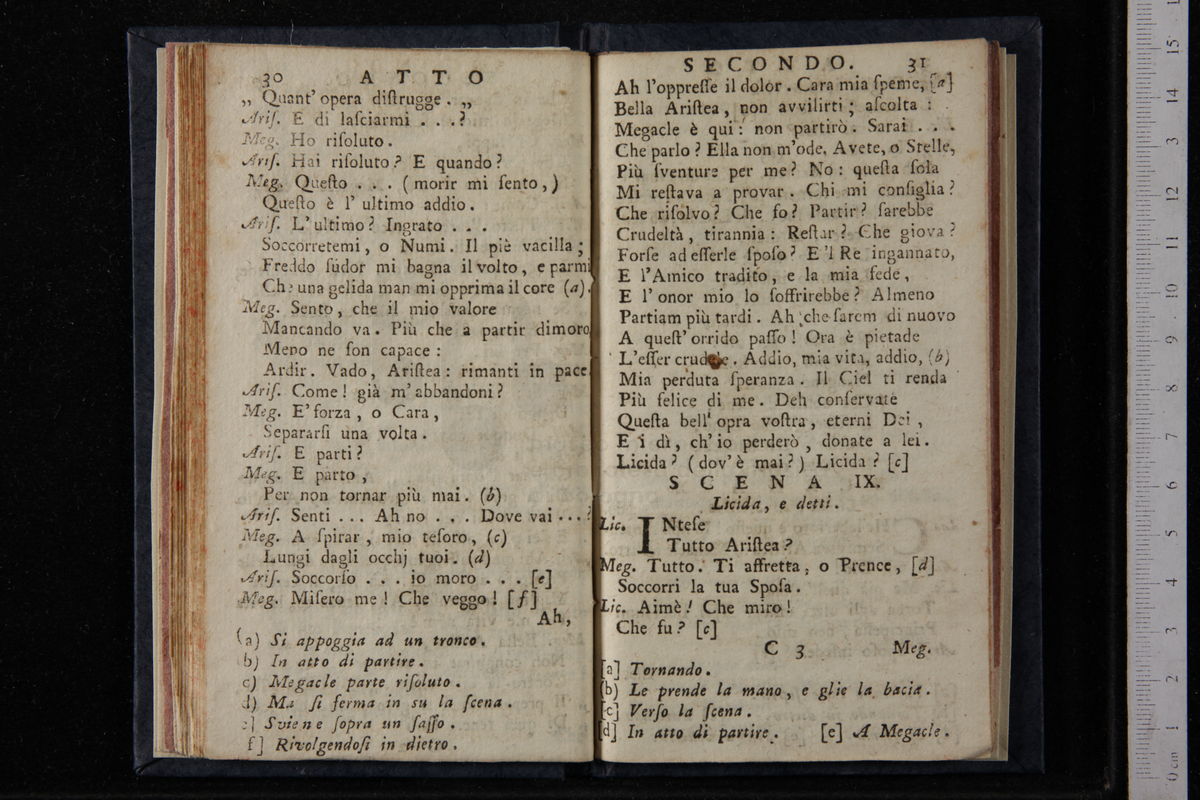 30 ATTO
„ Quant' opera diſtrugge. „
Ariſ. E di laſciarmi . . .?
Meg. Ho riſoluto.
Ariſ. Hai riſoluto? E quando?
Meg. Queſto . . . (morir mi ſento,)
Queſto è l' ultimo addio.
Ariſ. L' ultimo? Ingrato . . .
Soccorretemi, o Numi. Il piè vacilla;
Freddo ſudor mi bagna il volto, e parmi
Che una gelida man mi opprima il core (a).
Meg. Sento, che il mio valore
Mancando va. Più che a partir dimoro,
Meno ne ſon capace:
Ardir. Vado, Ariſtea: rimanti in pace.
Ariſ. Come! già m' abbandoni?
Meg. E' forza, o Cara,
Separarſi una volta.
Ariſ. E parti?
Meg. E parto,
Per non tornar più mai. (b)
Ariſ. Senti ... Ah no . . . Dove vai ...?
Meg. A ſpirar, mio teſoro, (c)
Lungi dagli occhj tuoi. (d)
Ariſ. Soccorſo . . . io moro . . . [e]
Meg. Miſero me! Che veggo! [f]
Ah,
(a) Si appoggia ad un tronco.
b) In atto di partire.
c) Megacle parte riſoluto.
d) Ma ſi ferma in su la ſcena.
e] Sviene ſopra un ſaſſo.
f] Rivolgendoſi in dietro.
SECONDO. 31
Ah l'oppreſſe il dolor. Cara mia ſpeme, [a]
Bella Ariſtea, non avvilirti; aſcolta:
Megacle è qui: non partirò. Sarai . . .
Che parlo? Ella non m'ode. Avete, o Stelle,
Più ſventure per me? No: queſta ſola
Mi reſtava a provar. Chi mi conſiglia?
Che riſolvo? Che fo? Partir? ſarebbe
Crudeltà, tirannia: Reſtar? Che giova?
Forſe ad eſſerle ſpoſo? E 'l Re ingannato,
E l'Amico tradito, e la mia fede,
E l' onor mio lo ſoffrirebbe? Almeno
Partiam più tardi. Ah che ſarem di nuovo
A queſt' orrido paſſo! Ora è pietade
L'eſſer crudele. Addio, mia vita, addio, (b)
Mia perduta ſperanza. Il Ciel ti renda
Più felice di me. Deh conſervate
Queſta bell' opra voſtra, eterni Dei,
E i dì, ch' io perderò, donate a lei.
Licida? (dov'è mai?) Licida? [c]
SCENA IX.
Licida, e detti.
Lic. INteſe
Tutto Ariſtea?
Meg. Tutto. Ti affretta, o Prence, [d]
Soccorri la tua Spoſa.
Lic. Aimè! Che miro!
Che fu? [e]
C 3 Meg.
[a] Tornando.
(b) Le prende la mano, e glie la bacia.
[c] Verſo la ſcena.
[d] In atto di partire. [e] A Megacle.